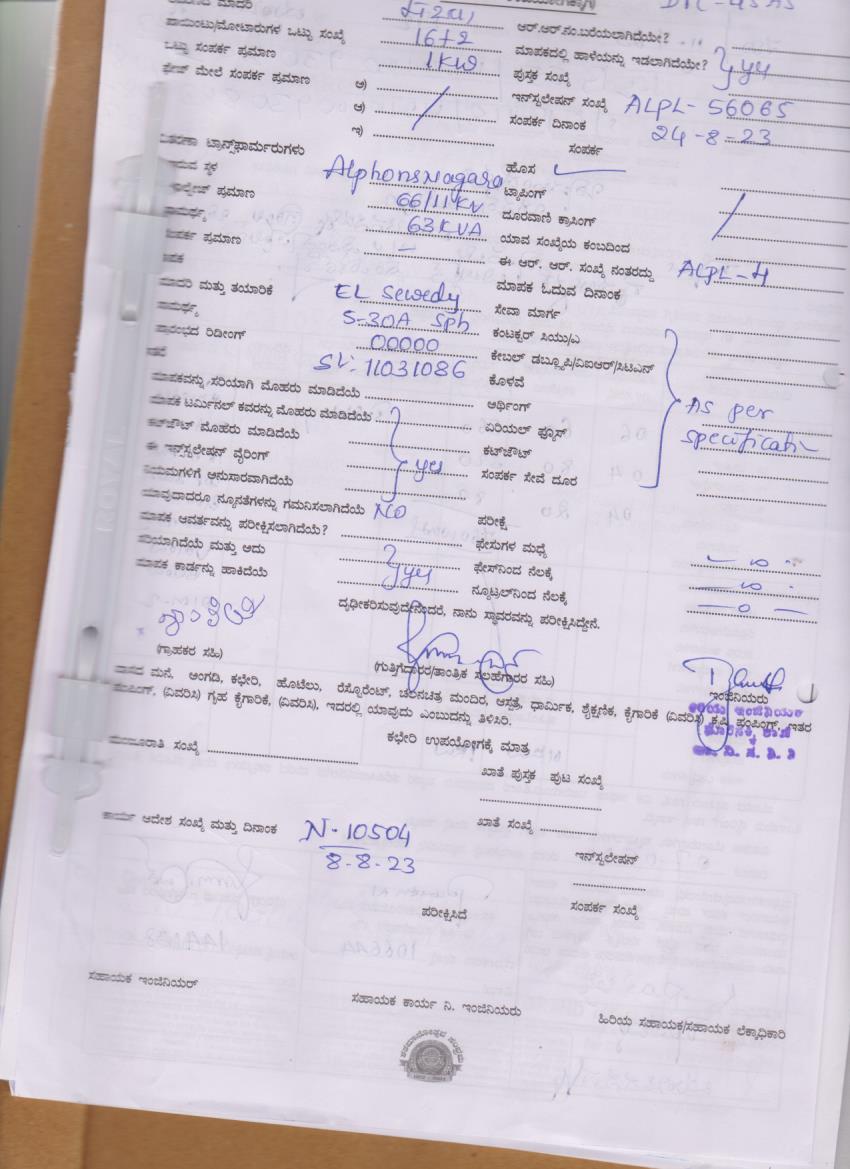 ಮಾದರಿ
ಪಾಯಿಂಟು/ಮೋಟಾರುಗಳ ಒಟ್ಟು ಸಂಖ್ಯೆ 16+2 ಆರ್.ಆರ್.ನಂ.ಬರೆಯಲಾಗಿದೆಯೇ?
ಒಟ್ಟು ಸಂಪರ್ಕ ಪ್ರಮಾಣ 1KW ಮಾಪಕದಲ್ಲಿ ಹಾಳೆಯನ್ನು ಇಡಲಾಗಿದೆಯೇ? yes
ಫೇಜ್ ಮೇಲೆ ಸಂಪರ್ಕ ಪ್ರಮಾಣ ಅ) ಪುಸ್ತಕ ಸಂಖ್ಯೆ
ಆ) ಇನ್‌ಸ್ಟಲೇಷನ್ ಸಂಖ್ಯೆ ALPL-56065
ಇ) ಸಂಪರ್ಕ ದಿನಾಂಕ 24-8-23
ವಿತರಣಾ ಟ್ರಾನ್ಸ್‌ಫಾರ್ಮರುಗಳು ಸಂಪರ್ಕ
ಸ್ಥಳ Alphonsnagara ಹೊಸ
ವೋಲ್ಟೇಜ್ ಪ್ರಮಾಣ 66/11KV ಟ್ಯಾಪಿಂಗ್
ಸಾಮರ್ಥ್ಯ 63KVA ದೂರವಾಣಿ ಕ್ರಾಸಿಂಗ್
ಸಂಪರ್ಕ ಪ್ರಮಾಣ — ಯಾವ ಸಂಖ್ಯೆಯ ಕಂಬದಿಂದ
ಮಾಪಕ ಈ ಆರ್. ಆರ್. ಸಂಖ್ಯೆ ನಂತರದ್ದು ALPL-4
ಮಾದರಿ ಮತ್ತು ತಯಾರಿಕೆ EL Sewedy ಮಾಪಕ ಓದುವ ದಿನಾಂಕ
ಸಾಮರ್ಥ್ಯ 5-30A Sph ಸೇವಾ ಮಾರ್ಗ
ಪ್ರಾರಂಭದ ರಿಡೀಂಗ್ 00000 ಕಂಟಕ್ಟರ್ ಸಿಯು/ಎ
SL: 11031086 ಕೇಬಲ್ ಡಬ್ಲ್ಯೂಪಿ/ವಿಐಆರ್/ಸಿಟಿಎಸ್
ಮಾಪಕವನ್ನು ಸರಿಯಾಗಿ ಮೊಹರು ಮಾಡಿದೆಯೆ ಕೊಳವೆ
ಮಾಪಕ ಟರ್ಮಿನಲ್ ಕವರನ್ನು ಮೊಹರು ಮಾಡಿದೆಯೆ ಆರ್ಥಿಂಗ್ As per
ಕಟ್‌ಔಟ್ ಮೊಹರು ಮಾಡಿದೆಯೆ ಏರಿಯಲ್ ಫ್ಯೂಸ್ specificatin
ಈ ಇನ್‌ಸ್ಟಲೇಷನ್ ವೈರಿಂಗ್ yes ಕಟ್‌ಔಟ್
ನಿಯಮಗಳಿಗೆ ಅನುಸಾರವಾಗಿದೆಯೆ ಸಂಪರ್ಕ ಸೇವೆ ದೂರ
ಯಾವುದಾದರೂ ನ್ಯೂನತೆಗಳನ್ನು ಗಮನಿಸಲಾಗಿದೆಯೆ NO
ಮಾಪಕ ಆವರ್ತವನ್ನು ಪರೀಕ್ಷಿಸಲಾಗಿದೆಯೆ? ಪರೀಕ್ಷೆ
ಸರಿಯಾಗಿದೆಯೆ ಮತ್ತು ಅದು yes ಫೇಸುಗಳ ಮಧ್ಯೆ
ಮಾಪಕ ಕಾರ್ಡನ್ನು ಹಾಕಿದೆಯೆ ಫೇಸ್‌ನಿಂದ ನೆಲಕ್ಕೆ
ನ್ಯೂಟ್ರಲ್‌ನಿಂದ ನೆಲಕ್ಕೆ
ದೃಢೀಕರಿಸುವುದೇನೆಂದರೆ, ನಾನು ಸ್ಥಾವರವನ್ನು ಪರೀಕ್ಷಿಸಿದ್ದೇನೆ.
(ಗ್ರಾಹಕರ ಸಹಿ)
(ಗುತ್ತಿಗೆದಾರರ/ತಾಂತ್ರಿಕ ಸಲಹೆಗಾರರ ಸಹಿ)
ಇಂಜಿನಿಯರು
ವಾಸದ ಮನೆ, ಅಂಗಡಿ, ಕಛೇರಿ, ಹೊಟೆಲು, ರೆಸ್ಟೋರೆಂಟ್, ಚಲನಚಿತ್ರ ಮಂದಿರ, ಆಸ್ಪತ್ರೆ, ಧಾರ್ಮಿಕ, ಶೈಕ್ಷಣಿಕ, ಕೈಗಾರಿಕೆ (ವಿವರಿಸಿ) ಕೃಷಿ ಪಂಪಿಂಗ್, ಇತರ
ಪಂಪಿಂಗ್, (ವಿವರಿಸಿ) ಗೃಹ ಕೈಗಾರಿಕೆ, (ವಿವರಿಸಿ), ಇದರಲ್ಲಿ ಯಾವುದು ಎಂಬುದನ್ನು ತಿಳಿಸಿರಿ.
ಕಛೇರಿ ಉಪಯೋಗಕ್ಕೆ ಮಾತ್ರ
ಮಂಜೂರಾತಿ ಸಂಖ್ಯೆ
ಖಾತೆ ಪುಸ್ತಕ ಪುಟ ಸಂಖ್ಯೆ
ಕಾರ್ಯ ಆದೇಶ ಸಂಖ್ಯೆ ಮತ್ತು ದಿನಾಂಕ N-10504 ಖಾತೆ ಸಂಖ್ಯೆ
8-8-23 ಇನ್‌ಸ್ಟಲೇಷನ್
ಪರೀಕ್ಷಿಸಿದೆ ಸಂಪರ್ಕ ಸಂಖ್ಯೆ
ಸಹಾಯಕ ಇಂಜಿನಿಯರ್
ಸಹಾಯಕ ಕಾರ್ಯ ನಿ. ಇಂಜಿನಿಯರು
ಹಿರಿಯ ಸಹಾಯಕ/ಸಹಾಯಕ ಲೆಕ್ಕಾಧಿಕಾರಿ